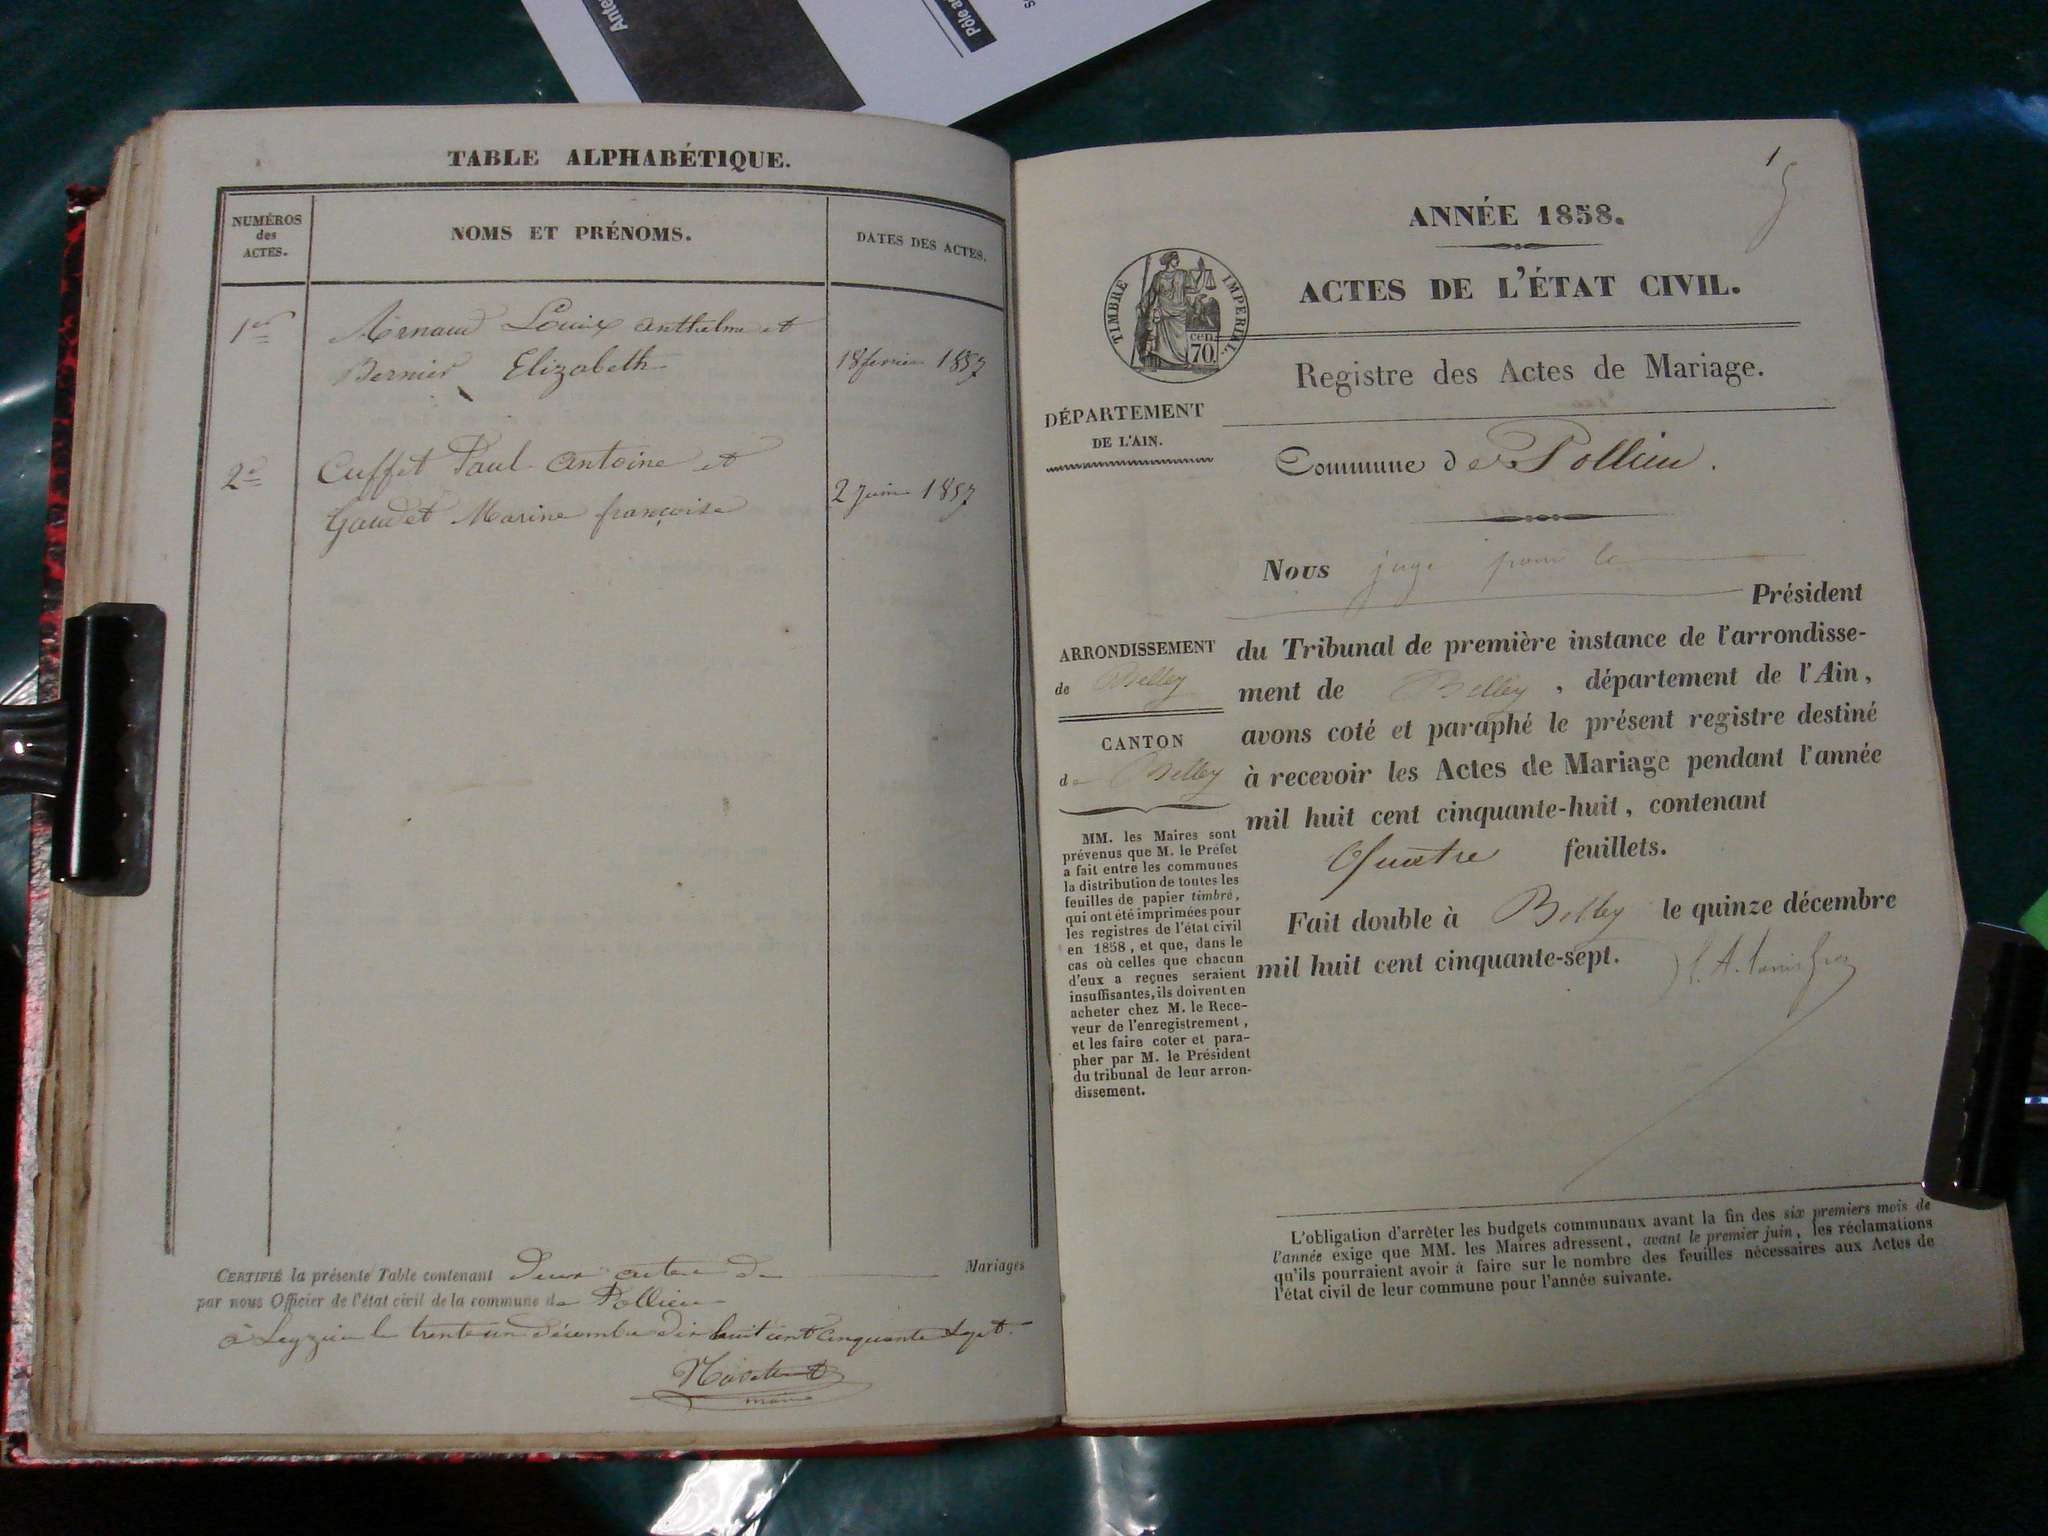 Pôle
TABLE ALPHABÉTIQUE.
NUMÉROS
des
ACTES.
NOMS ET PRÉNOMS.
DATES DES ACTES.
1er
Arnaud Louix anthelme et
Bernier Elizabeth
18 fevrier 1857
2e
Cuffet Paul Antoine et
Gaudet Marine françoise
2 Juin 1857
CERTIFIÉ la présente Table contenant deux actes de Mariages
par nous Officier de l'état civil de la commune de Pollieu
à le trente un décembre dix huit cent cinquante sept.
maire
1
ANNÉE 1858.
ACTES DE L'ÉTAT CIVIL.
TIMBRE IMPERIAL.
cen
70.
Registre des Actes de Mariage.
DÉPARTEMENT
DE L'AIN.
Commune de Pollieu.
Nous juge pour le
Président
du Tribunal de première instance de l'arrondisse-
ment de Belley, département de l'Ain,
avons coté et paraphé le présent registre destiné
à recevoir les Actes de Mariage pendant l'année
mil huit cent cinquante-huit, contenant
Quatre feuillets.
Fait double à Belley le quinze décembre
mil huit cent cinquante-sept.
ARRONDISSEMENT
de Belley
CANTON
de Belley
MM. les Maires sont
prévenus que M. le Préfet
a fait entre les communes
la distribution de toutes les
feuilles de papier timbré,
qui ont été imprimées pour
les registres de l'état civil
en 1858, et que, dans le
cas où celles que chacun
d'eux a reçues seraient
insuffisantes, ils doivent en
acheter chez M. le Rece-
veur de l'enregistrement,
et les faire coter et para-
pher par M. le Président
du tribunal de leur arron-
dissement.
L'obligation d'arrêter les budgets communaux avant la fin des six premiers mois de
l'année exige que MM. les Maires adressent, avant le premier juin, les réclamations
qu'ils pourraient avoir à faire sur le nombre des feuilles nécessaires aux Actes de
l'état civil de leur commune pour l'année suivante.